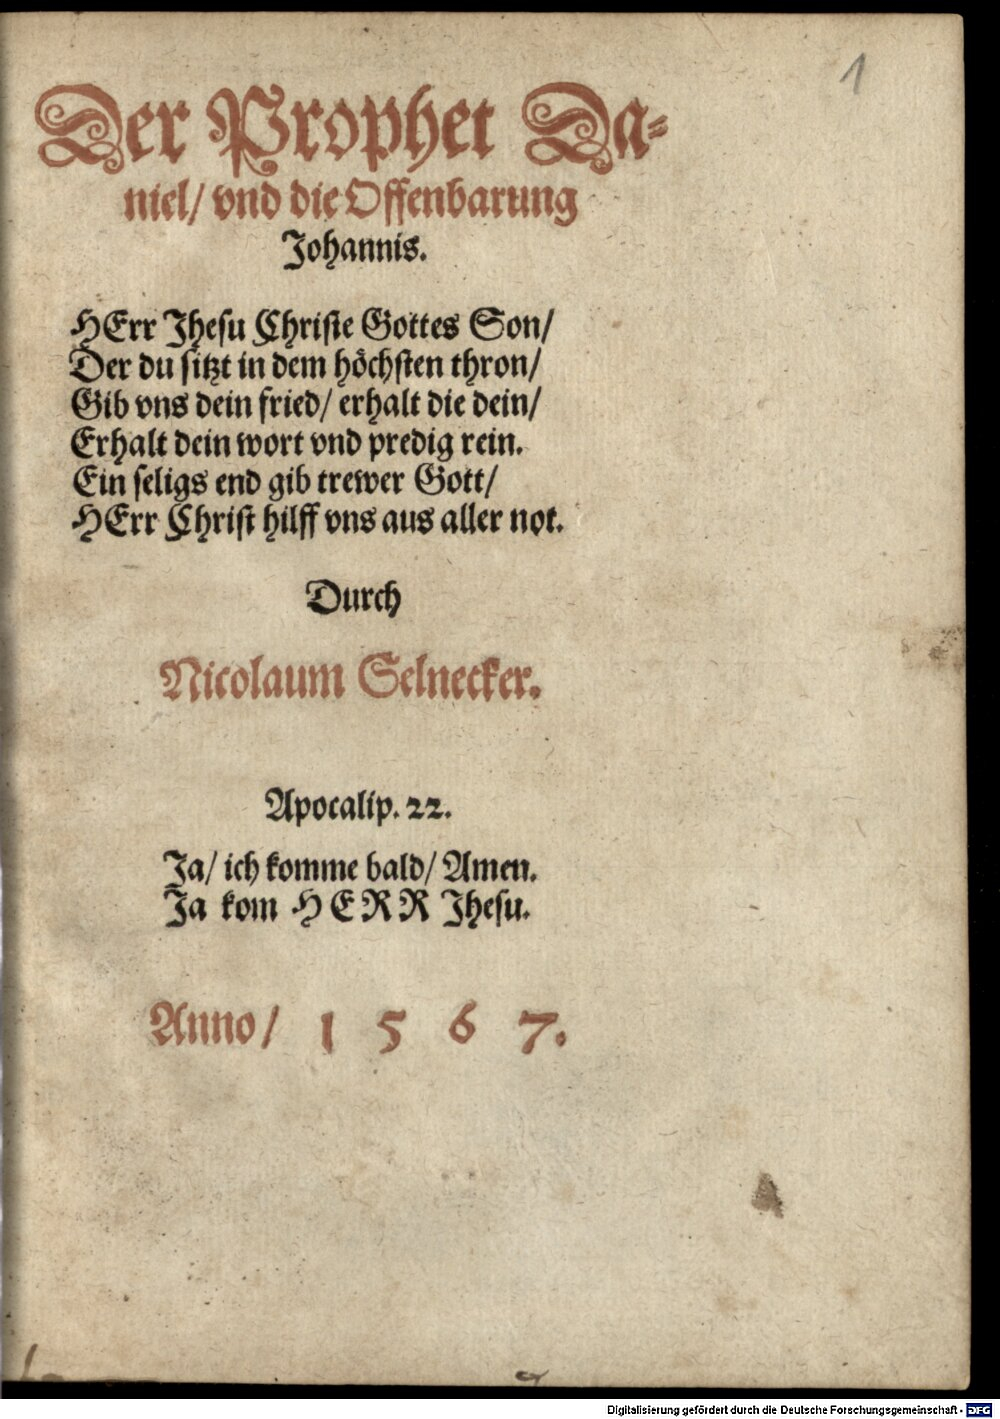 1
Der Prophet Da-
niel/ vnd die Offenbarung
Johannis.
HErr Jhesu Christe Gottes Son/
Der du sitzt in dem höchsten thron/
Gib vns dein fried/ erhalt die dein/
Erhalt dein wort vnd predig rein.
Ein seligs end gib trewer Gott/
HErr Christ hilff vns aus aller not.
Durch
Nicolaum Selnecker.
Apocalip. 22.
Ja/ ich komme bald/ Amen.
Ja kom HERR Jhesu.
Anno/ 1 5 6 7.
Digitalisierung gefördert durch die Deutsche Forschungsgemeinschaft - DFG